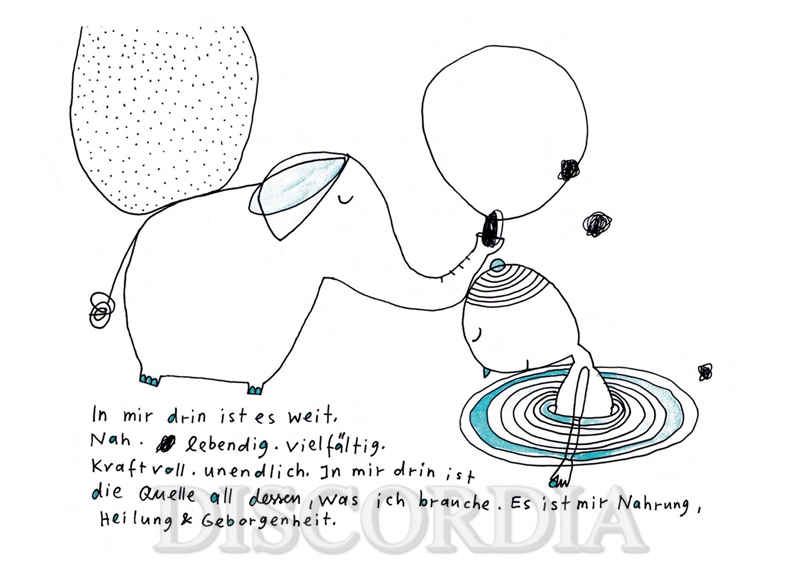 In mir drin ist es weit.
Nah. lebendig. vielfältig.
Kraftvoll. unendlich. In mir drin ist
die Quelle all dessen, was ich brauche. Es ist mir Nahrung,
Heilung & Geborgenheit.
DISCORDIA